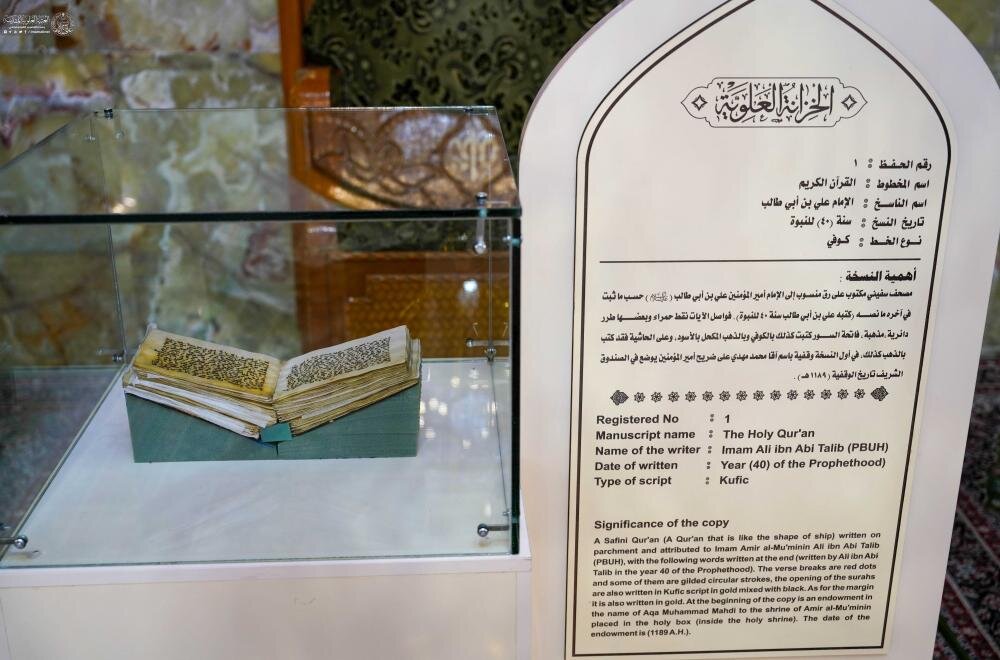 العتبة العلوية المقدسة
/ imamali.net
الخزانة العلوية
رقم الحفظ : ١
اسم المخطوط : القرآن الكريم
اسم الناسخ : الإمام علي بن أبي طالب
تاريخ النسخ : سنة (٤٠) للنبوة
نوع الخط : كوفي
أهمية النسخة :
مصحف سفيني مكتوب على رق منسوب إلى الإمام أمير المؤمنين علي بن أبي طالب () حسب ما ثبت
في آخره ما نصه (كتبه علي بن أبي طالب سنة ٤٠ للنبوة). فواصل الآيات نقط حمراء وبعضها طرر
دائرية مذهبة، فاتحة السور كتبت كذلك بالكوفي وبالذهب المكحل بالأسود، وعلى الحاشية فقد كتب
بالذهب كذلك، في أول النسخة وقفية باسم آقا محمد مهدي على ضريح أمير المؤمنين يوضع في الصندوق
الشريف تاريخ الوقفية (١١٨٩هـ).
Registered No : 1
Manuscript name : The Holy Qur'an
Name of the writer : Imam Ali ibn Abi Talib (PBUH)
Date of written : Year (40) of the Prophethood)
Type of script : Kufic
Significance of the copy
A Safini Qur'an (A Qur'an that is like the shape of ship) written on
parchment and attributed to Imam Amir al-Mu'minin Ali ibn Abi Talib
(PBUH), with the following words written at the end (written by Ali ibn Abi
Talib in the year 40 of the Prophethood). The verse breaks are red dots
and some of them are gilded circular strokes, the opening of the surahs
are also written in Kufic script in gold mixed with black. As for the margin
it is also written in gold. At the beginning of the copy is an endowment in
the name of Aqa Muhammad Mahdi to the shrine of Amir al-Mu'minin
placed in the holy box (inside the holy shrine). The date of the
endowment is (1189 A.H.).